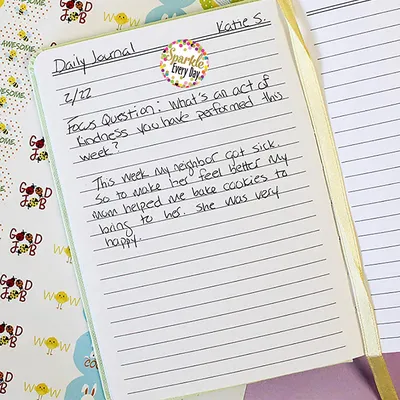 Katie S.
Daily Journal
Sparkle
Every Day
2/22
Focus Question: What's an act of
kindness you have performed this
week?
This week my neighbor got sick.
So to make her feel better my
mom helped me bake cookies to
bring to her. She was very
happy.
AWESOME
AWESOME
GOOD
JOB
GOOD
JOB
WOW
GOOD
JOB
GOOD
JOB
WOW
GOOD
JOB
WOW
GOOD
JOB
WOW